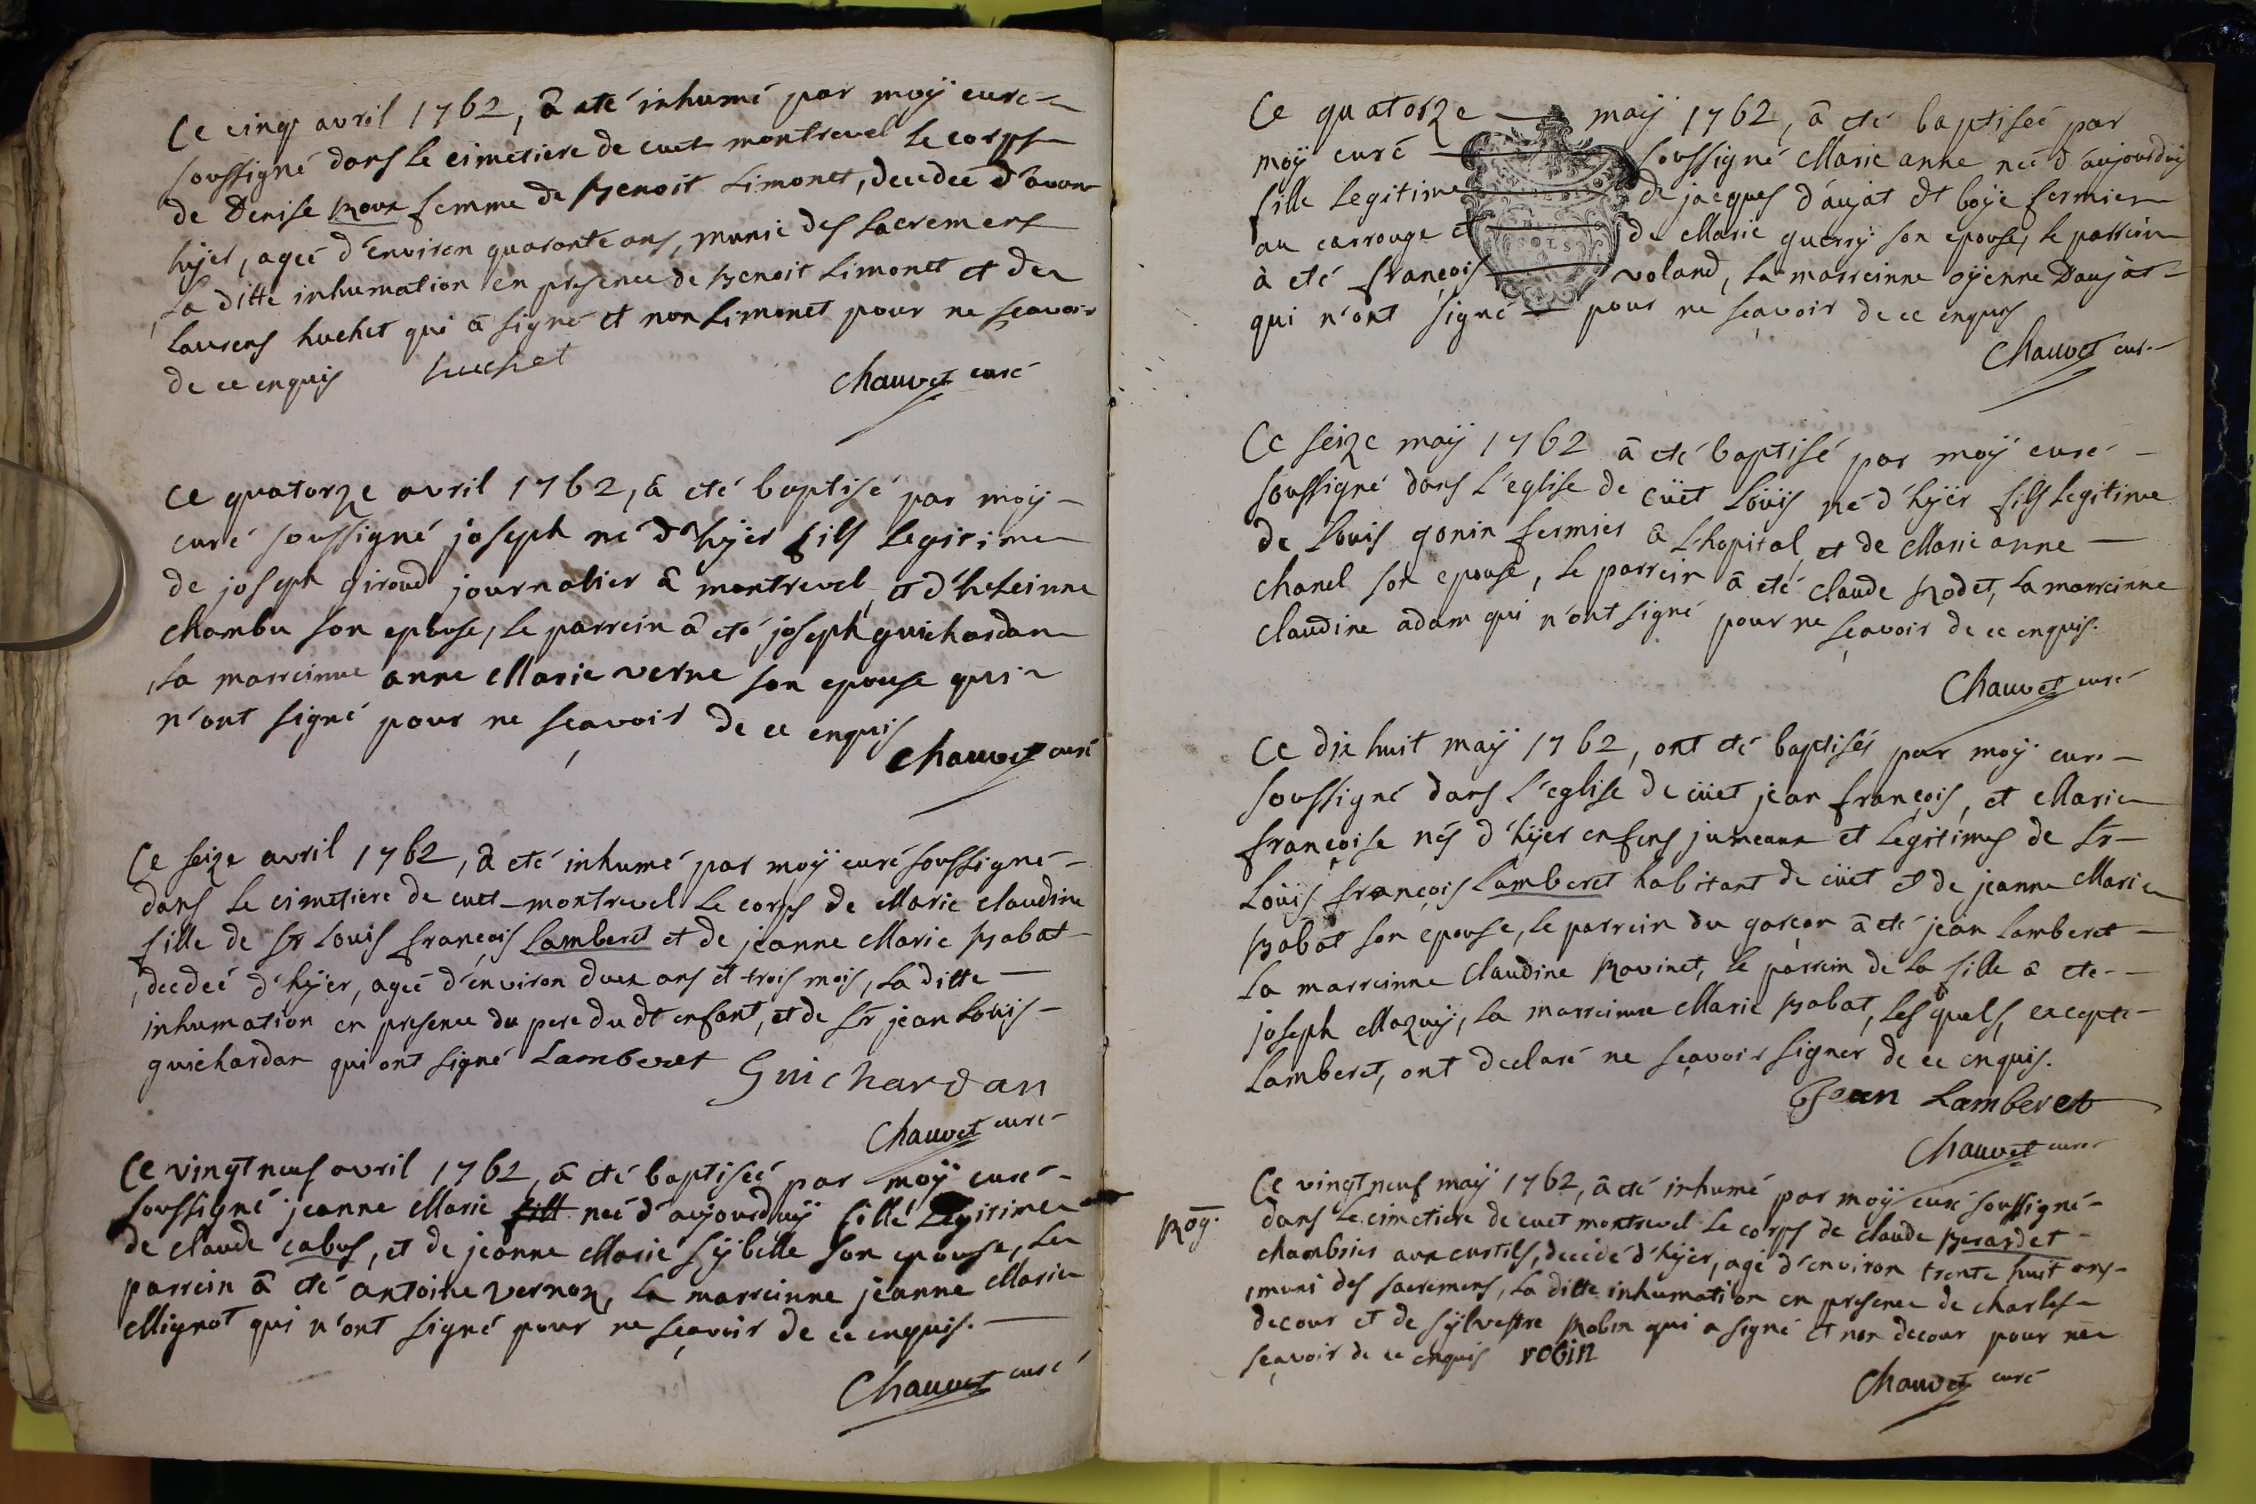 Ce cinq avril 1762, â eté inhumé par moÿ curé
soussigné dans le cimetiere de cuet montrevel le corps
de Denise Roux femme de Benoit Limonet, decedeé d'avan
hÿer, ageé d'environ quarante ans, munie des sacremens
la ditte inhumation en presence de Benoit Limonet et de
Laurens huchet qui â signé et non Limonet pour ne sçavoir
de ce enquis huchet
Chauvet curé
Ce quatorze avril 1762, â eté baptisé par moÿ
curé soussigné joseph né d'hÿer fils legitime
de joseph giroud journalier â montrevel, et d'heleinne
Chambu son epouse, le parrein â eté joseph guichardan
la marreinne anne Marie verne son epouse qui
n'ont signé pour ne sçavoir de ce enquis
Chauvet curé
Ce seize avril 1762, â eté inhumé par moÿ curé soussigné
dans le cimetiere de cuet-montrevel le corps de Marie Claudine
fille de Sr Louis françois Lamberet et de jeanne Marie Babat
decedeé d'hÿer, ageé d'environ deux ans et trois mois, la ditte
inhumation en presence du pere du dt enfant, et de Sr jean Loüis
guichardan qui ont signé Lamberet Guichardan
Chauvet curé
Ce vingt neuf avril 1762, â eté baptiseé par moÿ curé
soussigné jeanne Marie fill neé d'aujourduÿ fille legitime
de claude cabus, et de jeanne Marie Sÿbelle son epouse, le
parrein â eté antoine vernoz, la marreinne jeanne Marie
Mignot qui n'ont signé pour ne sçavoir de ce enquis.
Chauvet curé
Ce quatorze maÿ 1762, â eté baptiseé par
moÿ curé soussigné Marie anne neé d'aujourduÿ
fille legitime de jacques d'aujat dt boÿe fermier
au carrouge et de Marie guerrÿ son epouse, le parrein
à eté françois voland, la marreinne oÿenne Daujat
qui n'ont signé pour ne sçavoir de ce enquis
Chauvet cur
Ce seize maÿ 1762 â eté baptisé par moÿ curé
soussigné dans l'eglise de cüet Loüis né d'hÿer fils legitime
de Louis gonin fermier â l'hopital, et de Marie anne
chanel son epouse, le parrein â eté claude Rodet, la marreinne
claudine adam qui n'ont signé pour ne sçavoir de ce enquis.
Chauvet curé
Ce dix huit maÿ 1762, ont eté baptisés par moÿ curé
soussigné dans l'eglise de cüet jean françois, et Marie
françoise nés d'hÿer enfens jumeaux et legitimes de Sr
Loüis françois Lamberet habitant de cüet et de jeanne Marie
Babat son epouse, le parrein du garçon â eté jean Lamberet
la marreinne Claudine Ravinet, le parrein de la fille â eté
joseph Mazuÿ, la marreinne Marie Babat, lesquels, excepté
Lamberet, ont declaré ne sçavoir signer de ce enquis.
Jean Lamberet
Chauvet curé
Ce vingt neuf maÿ 1762, â eté inhumé par moÿ curé soussigné
Rog. dans le cimetiere de cuet montrevel le corps de claude Berardet
chambrier aux curtils, decedé d'hÿer, agé d'environ trente huit ans
muni des sacremens, la ditte inhumation en presence de charles
decour et de sÿlvestre Robin qui a signé et non decour pour ne
sçavoir de ce enquis robin
Chauvet curé